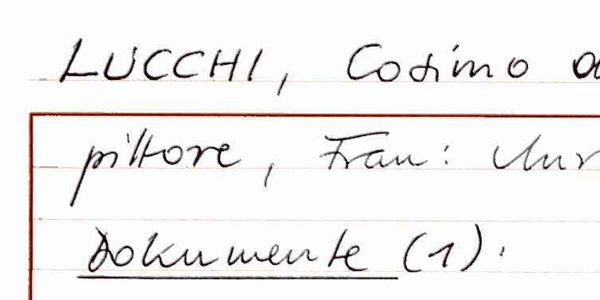 LUCCHI, Cosimo
pittore, Frau:
Dokumente (1).